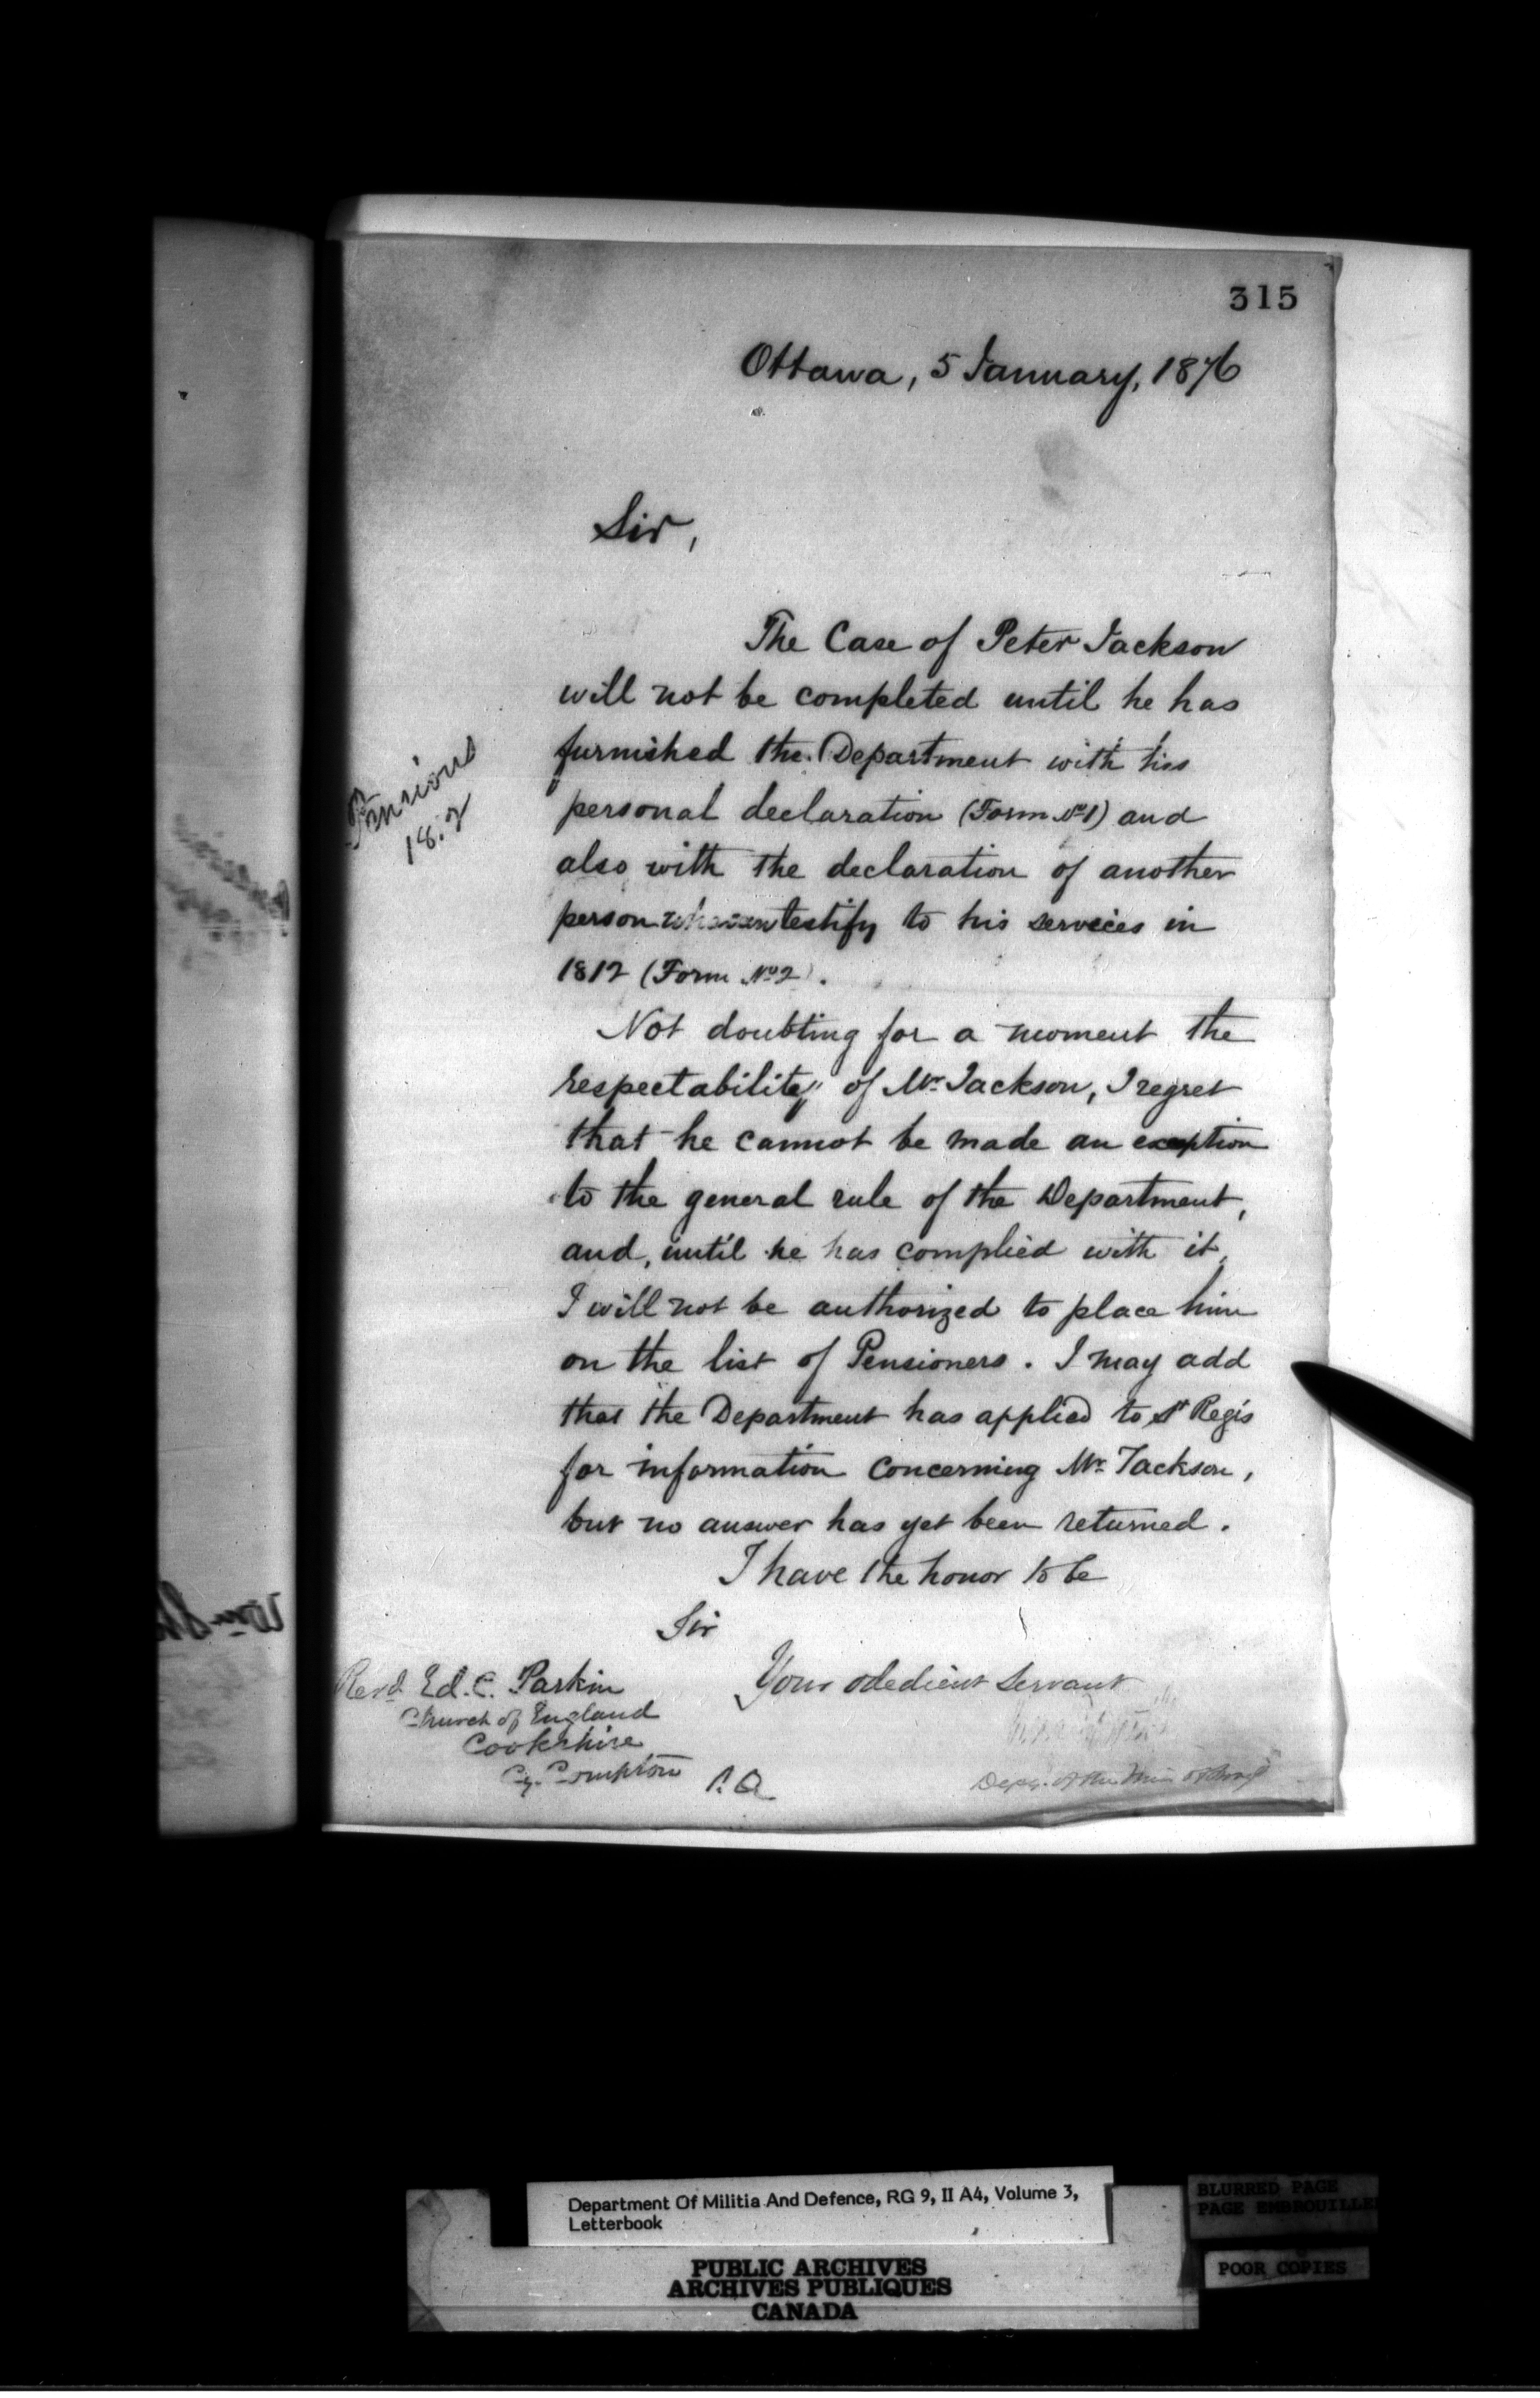 315
Ottawa, 5 January, 1876
Sir,
The Case of Peter Jackson
will not be completed until he has
furnished the Department with his
personal declaration (Form No 1) and
also with the declaration of another
person who can testify to his services in
1812 (Form No 2).
Not doubting for a moment the
respectability of Mr. Jackson, I regret
that he cannot be made an exception
to the general rule of the Department,
and, until he has complied with it,
I will not be authorized to place him
on the list of Pensioners. I may add
that the Department has applied to St Regis
for information concerning Mr. Jackson,
but no answer has yet been returned.
I have the honor to be
Sir
Your obedient Servant
Pensions
18.2
Revd. Ed. C. Parkin
Church of England
Cookshire
Cy. Compton P.Q
Depy. of the Min of
Department Of Militia And Defence, RG 9, II A4, Volume 3,
Letterbook
PUBLIC ARCHIVES
ARCHIVES PUBLIQUES
CANADA
BLURRED PAGE
PAGE EMBROUILLE
POOR COPIES